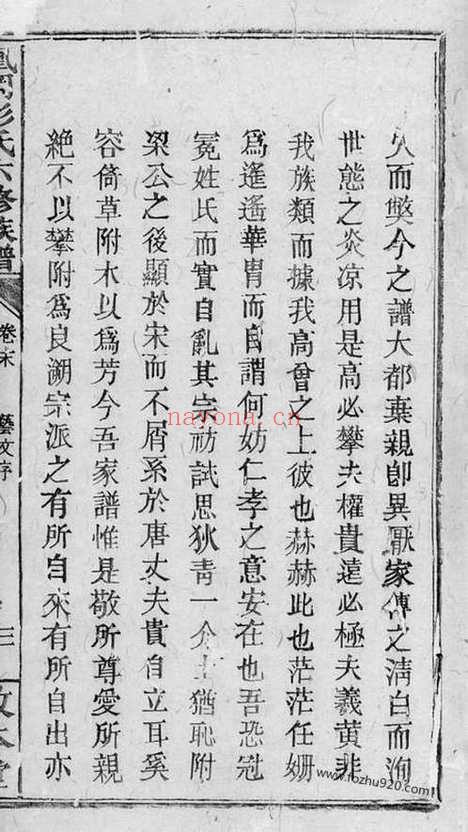 久而弊今之譜大都棄親卽異厭家傳之淸白而洵
世態之炎凉用是高必攀夫權貴遠必極夫羲黃非
我族類而據我高曾之上彼也赫赫此也茫茫任姍
爲遙遙華胄而自謂何妨仁孝之意安在也吾恐冠
冕姓氏而實自亂其宗祊試思狄靑一介士猶恥附
梁公之後顯於宋而不屑系於唐丈夫貴自立耳奚
容倚草附木以爲芳今吾家譜惟是敬所尊愛所親
絕不以攀附爲良溯宗派之有所自來有所自出亦
彭氏六修族譜
卷末
藝文序
三
nayona.cn
www.fozhu920.com